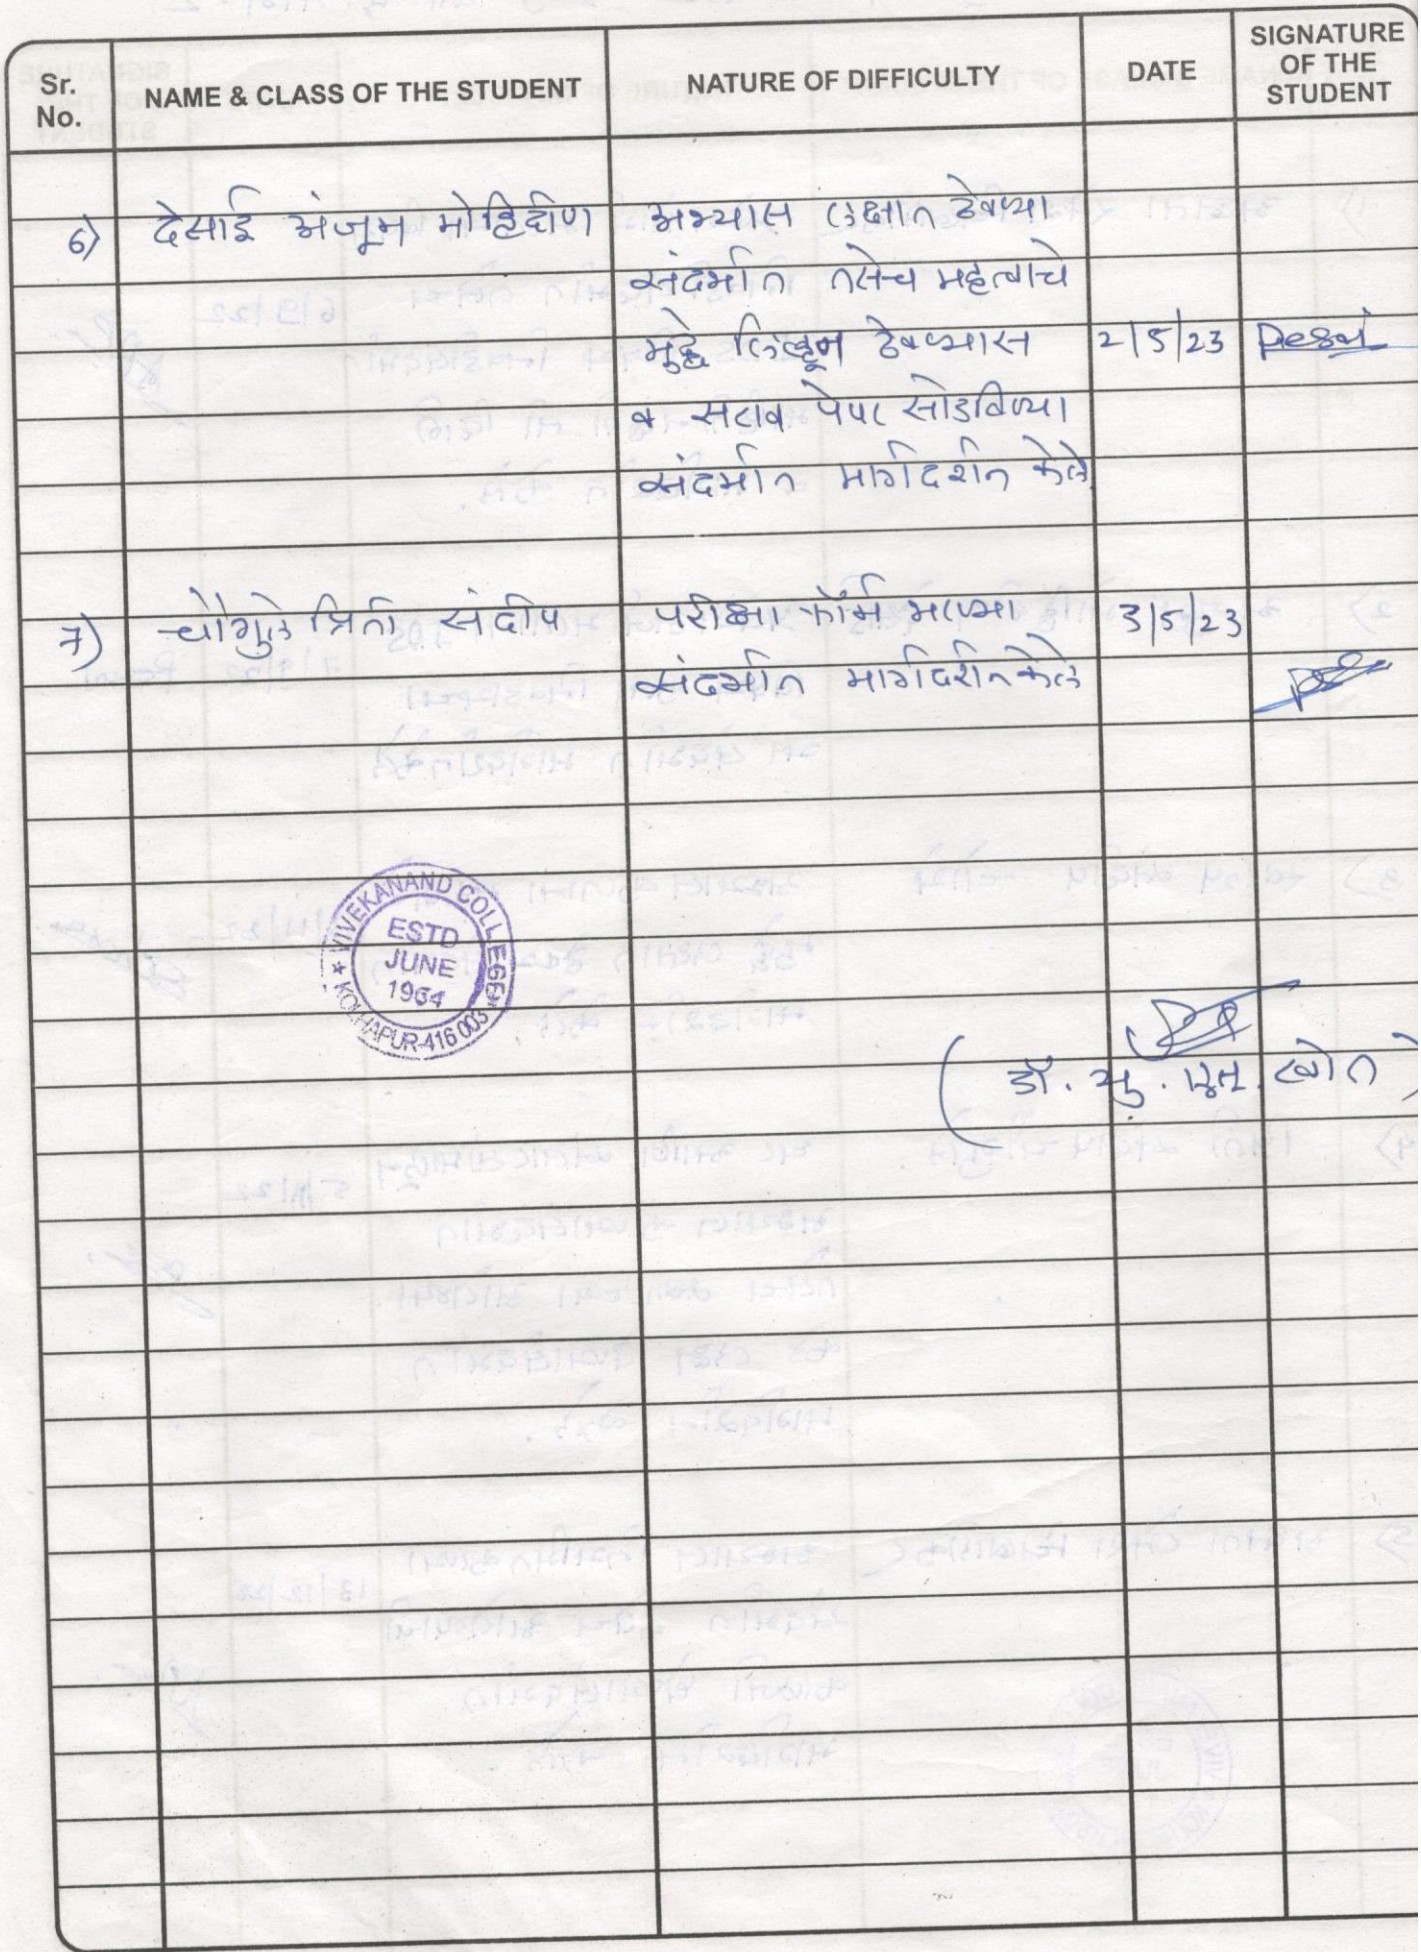 Sr. No.
NAME & CLASS OF THE STUDENT
NATURE OF DIFFICULTY
DATE
SIGNATURE OF THE STUDENT
6) देसाई अंजूम मोहिद्दीण
अभ्यास लक्षात ठेवण्या
संदर्भात तसेच महत्वाचे
मुद्दे लिहून ठेवण्यास 2/5/23 Desai
व सराव पेपर सोडविण्या
संदर्भात मार्गदर्शन केले.
7) चौगुले प्रिती संदीप परीक्षा फॉर्म भरण्या 3/5/23
संदर्भात मार्गदर्शन केले
VIVEKANAND COLLEGE
ESTD
JUNE
1964
KOLHAPUR-416 003
(डॉ. यु. एन. खोत)